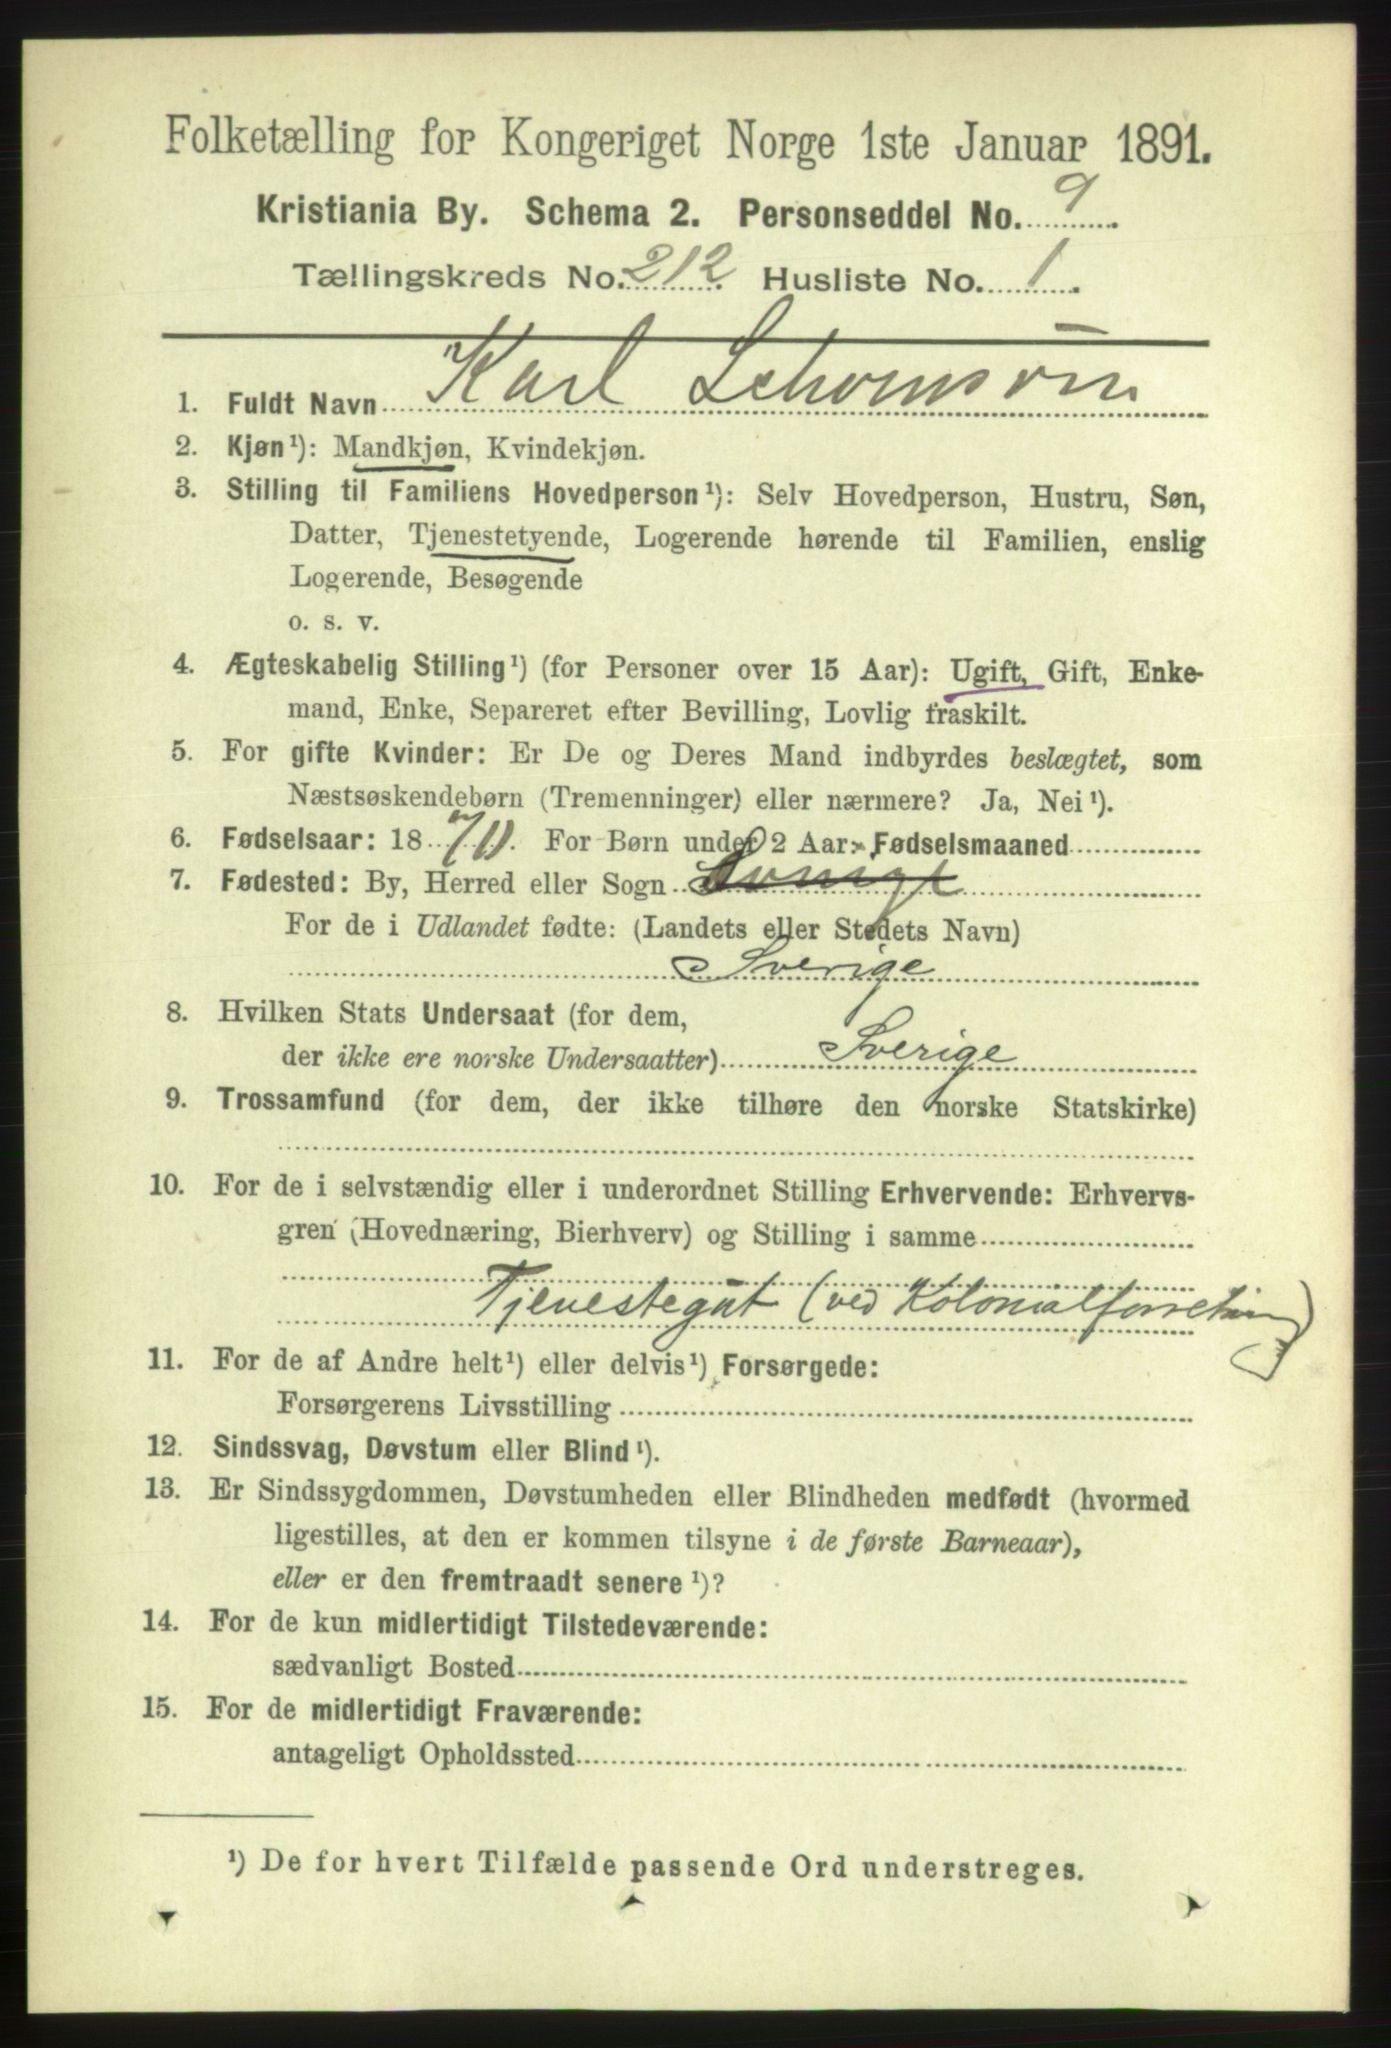 Folketælling for Kongeriget Norge 1ste Januar 1891.
Kristiania By. Schema 2. Personseddel No. 9
Tællingskreds No. 212. Husliste No. 1.
1. Fuldt Navn Karl
2. Kjøn ¹): Mandkjøn, Kvindekjøn.
3. Stilling til Familiens Hovedperson ¹): Selv Hovedperson, Hustru, Søn,
Datter, Tjenestetyende, Logerende hørende til Familien, enslig
Logerende, Besøgende
o. s. v.
4. Ægteskabelig Stilling ¹) (for Personer over 15 Aar): Ugift, Gift, Enke-
mand, Enke, Separeret efter Bevilling, Lovlig fraskilt.
5. For gifte Kvinder: Er De og Deres Mand indbyrdes beslægtet, som
Næstsøskendebørn (Tremenninger) eller nærmere? Ja, Nei ¹).
6. Fødselsaar: 1870. For Børn under 2 Aar: Fødselsmaaned
7. Fødested: By, Herred eller Sogn
For de i Udlandet fødte: (Landets eller Stedets Navn)
Sverige
8. Hvilken Stats Undersaat (for dem,
der ikke ere norske Undersaatter) Sverige
9. Trossamfund (for dem, der ikke tilhøre den norske Statskirke)
10. For de i selvstændig eller i underordnet Stilling Erhvervende: Erhvervs-
gren (Hovednæring, Bierhverv) og Stilling i samme
Tjenestegut (ved Kolonialforretning)
11. For de af Andre helt ¹) eller delvis ¹) Forsørgede:
Forsørgerens Livsstilling
12. Sindssvag, Døvstum eller Blind ¹).
13. Er Sindssygdommen, Døvstumheden eller Blindheden medfødt (hvormed
ligestilles, at den er kommen tilsyne i de første Barneaar),
eller er den fremtraadt senere ¹)?
14. For de kun midlertidigt Tilstedeværende:
sædvanligt Bosted
15. For de midlertidigt Fraværende:
antageligt Opholdssted
¹) De for hvert Tilfælde passende Ord understreges.